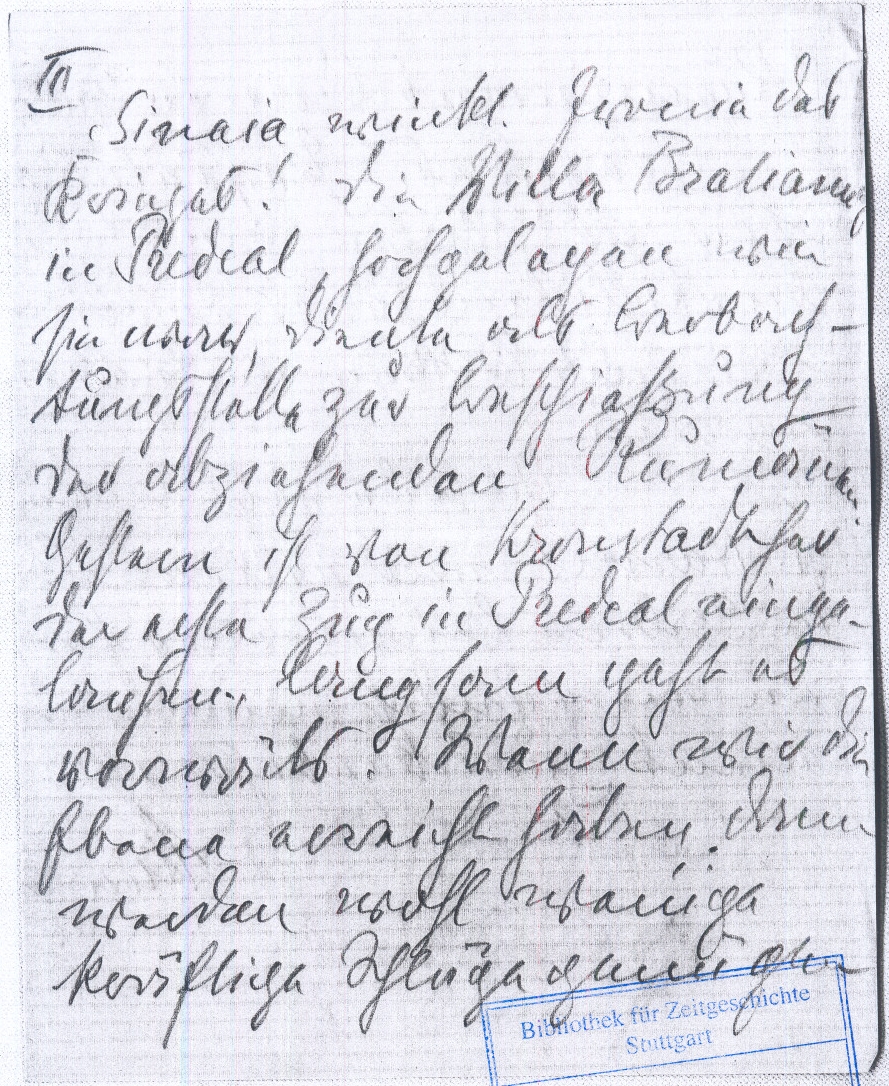 III
Sinaia winkt. Ironie des
Krieges! Die Villa Bratianus
in Predeal, hochgelegen wie
sie war, diente als Beobach-
tungsstelle zur Beschießung
der abziehenden Rumänen.
Gestern ist von Kronstadt her
der erste Zug in Predeal einge-
laufen. Langsam geht es
vorwärts. Wenn wir die
Ebene erreicht haben, dann
werden wohl wenige
kräftige Schläge genügen
Bibliothek für Zeitgeschichte
Stuttgart